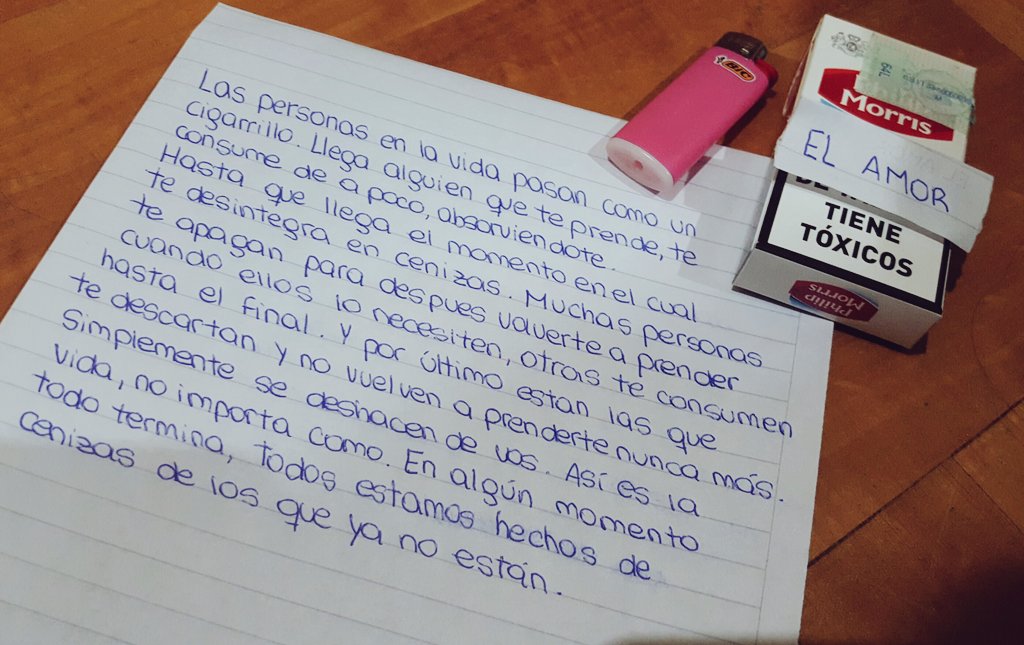 Las personas en la vida pasan como un
cigarrillo. Llega alguien que te prende, te
consume de a poco, absorviendote.
Hasta que llega el momento en el cual
te desintegra en cenizas. Muchas personas
te apagan para despues volverte a prender
cuando ellos lo necesiten, otras te consumen
hasta el final. Y por último estan las que
te descartan y no vuelven a prenderte nunca más.
Simplemente se deshacen de vos. Así es la
vida, no importa como. En algún momento
todo termina, todos estamos hechos de
cenizas de los que ya no están.
BIC
Morris
EL AMOR
TIENE
TÓXICOS
Philip
Morris